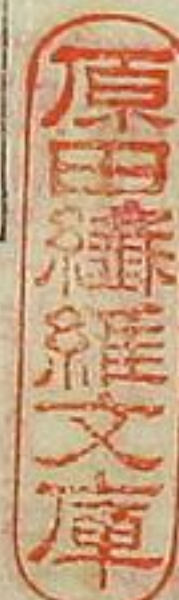 原田繊維文庫